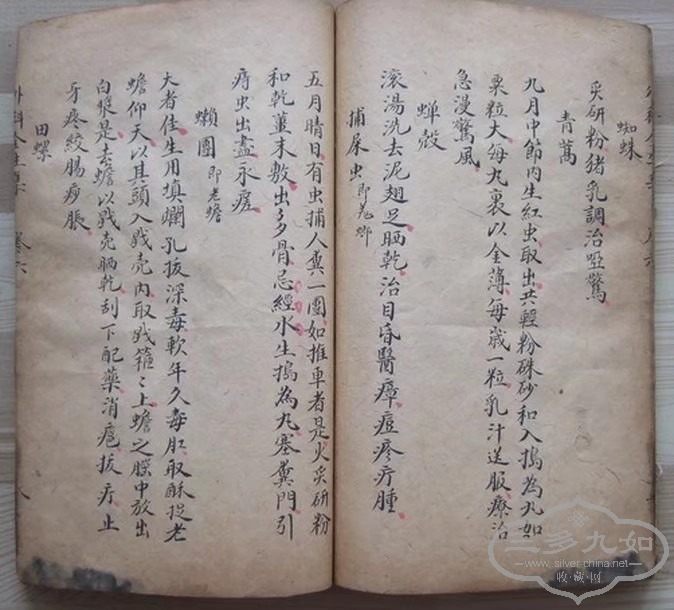 蜘蛛
炙研粉豬乳調治啞驚
青蒿
九月中節內生紅虫取出共輕粉硃砂和入搗為丸如
粟粒大每丸裹以金薄每歲一粒乳汁送服療治
急漫驚風
蝉殼
滾湯洗去泥翅足晒乾治目昏醫瘴痘疹疔腫
捕屎虫即羗螂
五月晴日有虫捕人糞一團如推車者是火炙研粉
和乾薑末敷出多骨忌經水生搗為丸塞糞門引
痔虫出盡永痊
懶團即老蟾
大者佳生用填爛孔拔深毒軟年久毒肛取酥捉老
蟾仰天以其頭入戥壳內取戥箍〻上蟾之腦中放出
白漿是去蟾以戥壳晒乾刮下配藥消拔疔止
牙疼絞腸痧脹
田螺
外科全生 卷六 八
三多九如
www.silver-china.net
收·藏·网